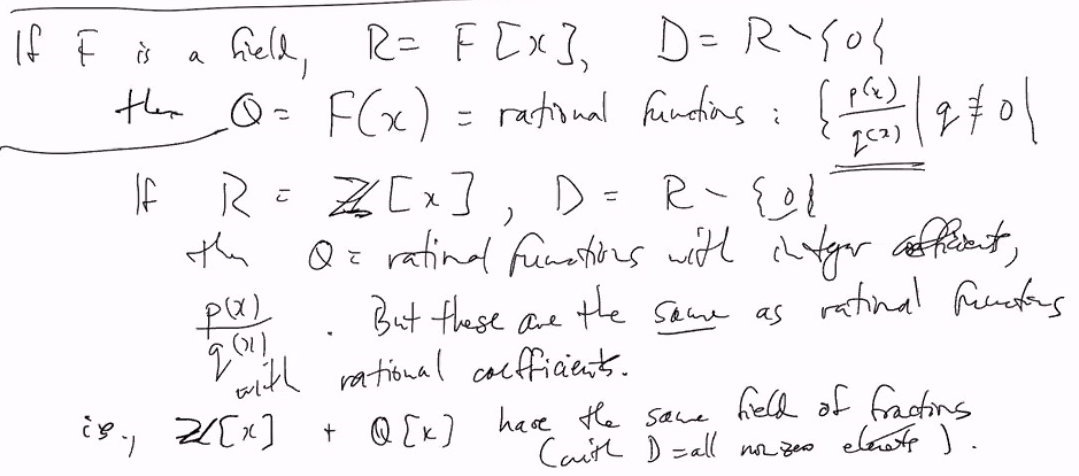 If F is a field, R = F[x], D = R \ {0}
then Q = F(x) = rational functions : { p(x)/q(x) | q ≠ 0 }
If R = ℤ[x], D = R - {0}
then Q = rational functions with integer coefficients,
p(x)/q(x) . But these are the same as rational functions
with rational coefficients.
ie., ℤ[x] + Q[x] have the same field of fractions
(with D = all nonzero elements).